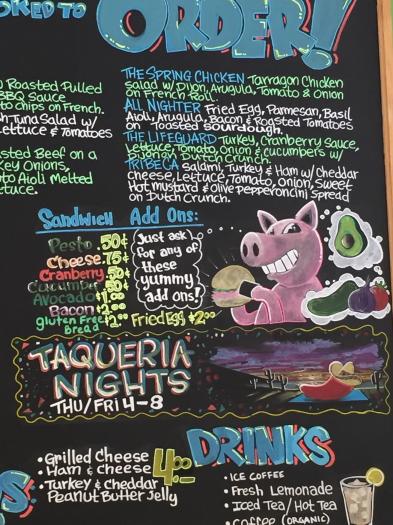 OKED TO ORDER!
Roasted Pulled
BBQ Sauce
to chips on French.
sh, Tuna Salad w/
Lettuce & Tomatoes
asted Beef on a
Key Onions,
to Aioli Melted
ttuce.
THE SPRING CHICKEN Tarragon Chicken
Salad w/ Dijon, Arugula, Tomato & Onion
on French Roll.
ALL NIGHTER Fried Egg, Parmesan, Basil
Aioli, Arugula, Bacon & Roasted Tomatoes
on Toasted sourdough.
THE LIFEGUARD Turkey, Cranberry sauce,
Lettuce, Tomato, Onion & cucumbers w/
Dijon on Dutch Crunch.
TRIBECA Salami, Turkey & Ham w/ cheddar
cheese, Lettuce, Tomato, Onion, Sweet
Hot Mustard & olive pepperoncini Spread
on Dutch Crunch.
Sandwich Add Ons:
Pesto .50¢
Cheese .75¢
Cranberry .50¢
Cucumber .50¢
Avocado $1.00
Bacon $2.00
gluten Free Bread $2.00
Fried Egg $2.00
Just ask
for any of
these
yummy
add ons!
TAQUERIA
NIGHTS
THU/FRI 4-8
• Grilled Cheese
• Ham & cheese
• Turkey & cheddar
Peanut Butter Jelly
4.00
S:
DRINKS
• ICE COFFEE
• Fresh Lemonade
• Iced Tea/Hot Tea
• Coffee (ORGANIC)